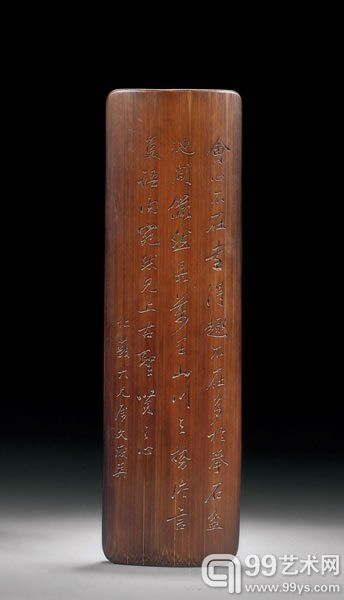 會心不在遠得趣不在多於拳石盆
池間儼然具萬里山川之勢片言
隻語內宛然見上古聖賢之心
大兄屬
99艺术网
www.99ys.com